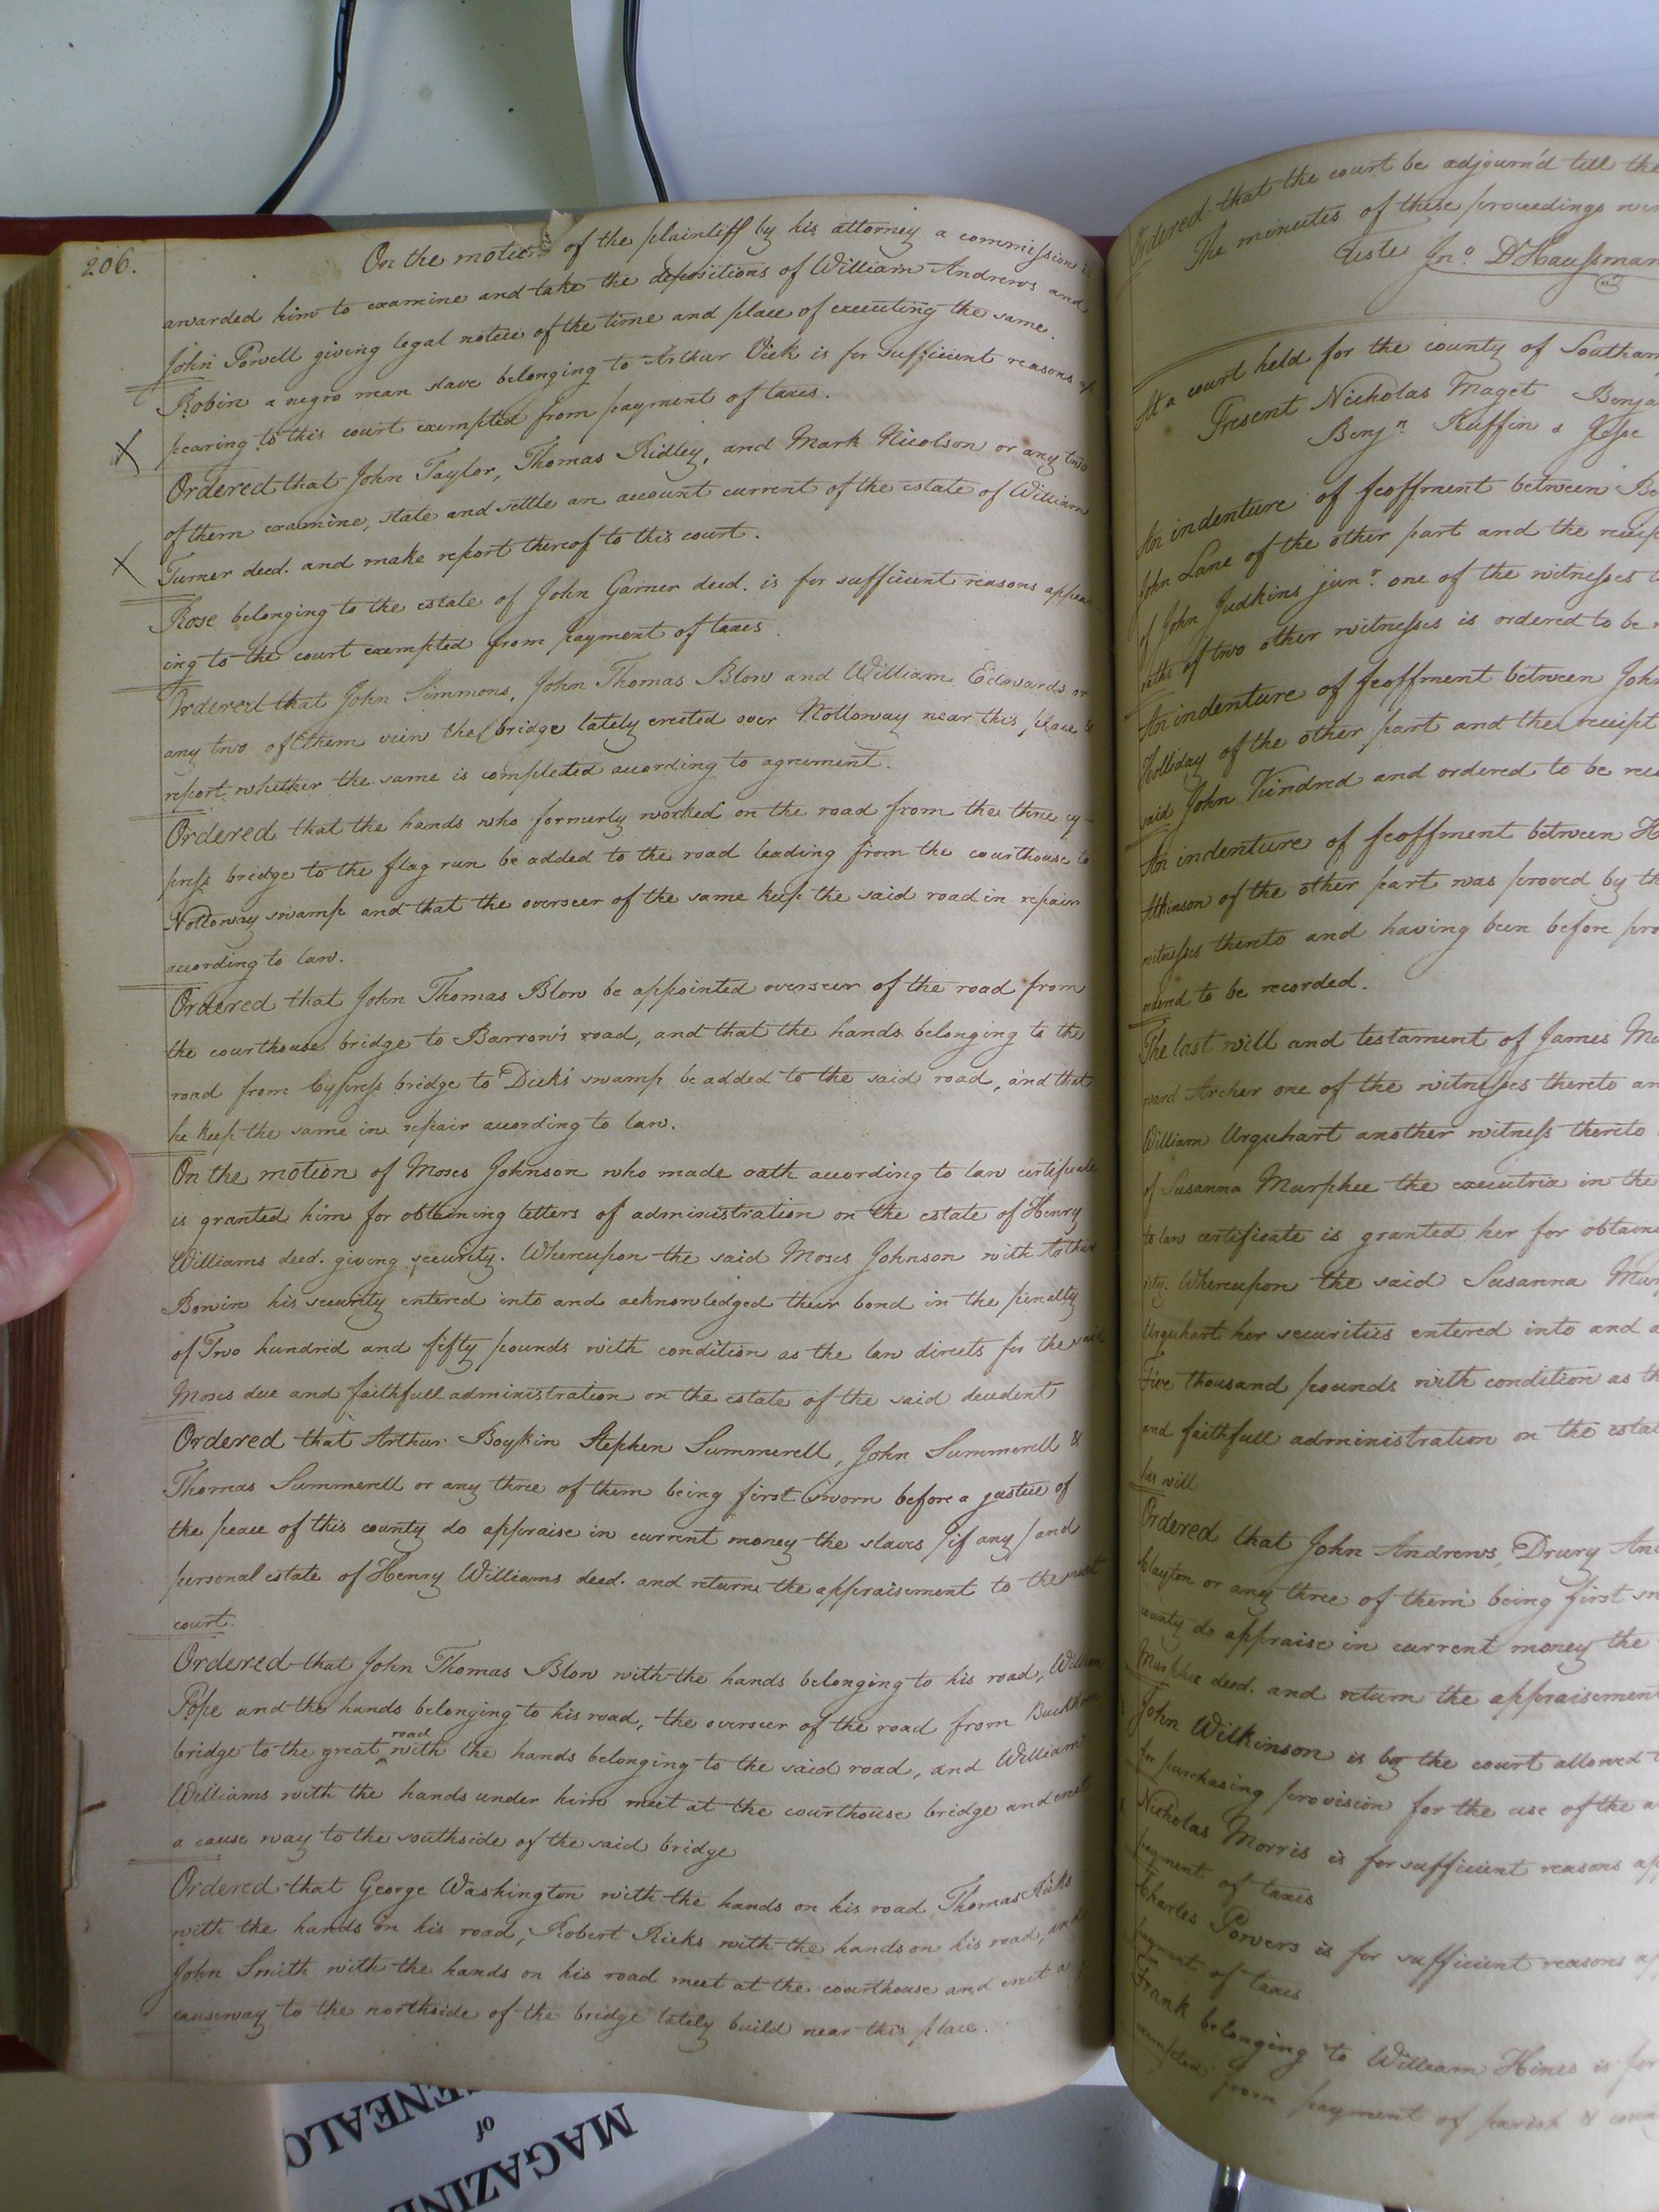 206.
On the motion of the plaintiff by his attorney a commission is
awarded him to examine and take the depositions of William Andrews and
John Powell giving legal notice of the time and place of executing the same.
Robin a negro man slave belonging to Arthur Vick is for sufficient reasons ap
pearing to this court exempted from payment of taxes.
Ordered that John Taylor, Thomas Ridley, and Mark Nicolson or any two
of them examine, state and settle an account current of the estate of William
Turner decd. and make report thereof to this court.
Rose belonging to the estate of John Garner decd. is for sufficient reasons appear
ing to the court exempted from payment of taxes.
Ordered that John Simmons, John Thomas Blow and William Edwards or
any two of them view the bridge lately erected over Nottoway near this place &
report whether the same is completed according to agreement.
Ordered that the hands who formerly worked on the road from the three cy-
press bridge to the flag run be added to the road leading from the courthouse to
Nottoway swamp and that the overseer of the same keep the said road in repair
according to law.
Ordered that John Thomas Blow be appointed overseer of the road from
the courthouse bridge to Barrow's road, and that the hands belonging to the
road from Cypress bridge to Dick's swamp be added to the said road, and that
he keep the same in repair according to law.
On the motion of Moses Johnson who made oath according to law certificate
is granted him for obtaining letters of administration on the estate of Henry
Williams decd. giving security. Whereupon the said Moses Johnson with Arthur
Bowin his security entered into and acknowledged their bond in the penalty
of Two hundred and fifty pounds with condition as the law directs for the said
Moses due and faithfull administration on the estate of the said decedent
Ordered that Arthur Boykin Stephen Summerell, John Summerell &
Thomas Summerell or any three of them being first sworn before a justice of
the peace of this county do appraise in current money the slaves /if any/ and
personal estate of Henry Williams decd. and return the appraisement to the next
court.
Ordered that John Thomas Blow with the hands belonging to his road, William
Pope and the hands belonging to his road, the overseer of the road from Buckhorn
bridge to the great road with the hands belonging to the said road, and William
Williams with the hands under him meet at the courthouse bridge and erect
a cause way to the southside of the said bridge
Ordered that George Washington with the hands on his road Thomas Ricks
with the hands on his road, Robert Ricks with the hands on his road, and
John Smith with the hands on his road meet at the courthouse and erect a
causeway to the northside of the bridge lately build near this place.
Ordered that the court be adjourn'd till the
The minutes of these proceedings wer
Teste Jno. D'Haussman
At a court held for the county of Southam
Present Nicholas Maget Benja
Benjn. Ruffin & Jesse
An indenture of feoffment between Be
John Lane of the other part and the receip
of John Judkins junr. one of the witnesses
oaths of two other witnesses is ordered to be
An indenture of feoffment between John
Holliday of the other part and the receipt
said John Kindred and ordered to be rec
An indenture of feoffment between H
Atkinson of the other part was proved by th
witnesses thereto and having been before pro
ordered to be recorded.
The last will and testament of James Mu
ward Archer one of the witnesses thereto an
William Urquhart another witness thereto
of Susanna Murphee the executrix in the
to law certificate is granted her for obtain
rity. Whereupon the said Susanna Mur
Urquhart her securities entered into and a
Five thousand pounds with condition as th
and faithfull administration on the estat
his will
Ordered that John Andrews, Drury An
Clayton or any three of them being first sw
county do appraise in current money the
Murphee decd. and return the appraisement
John Wilkinson is by the court allowed
for purchasing provision for the use of the a
Nicholas Morris is for sufficient reasons ap
payment of taxes
Charles Powers is for sufficient reasons ap
payment of taxes
Frank belonging to William Hines is for
exempted from payment of parish & coun
MAGAZINE
of
GENEALO